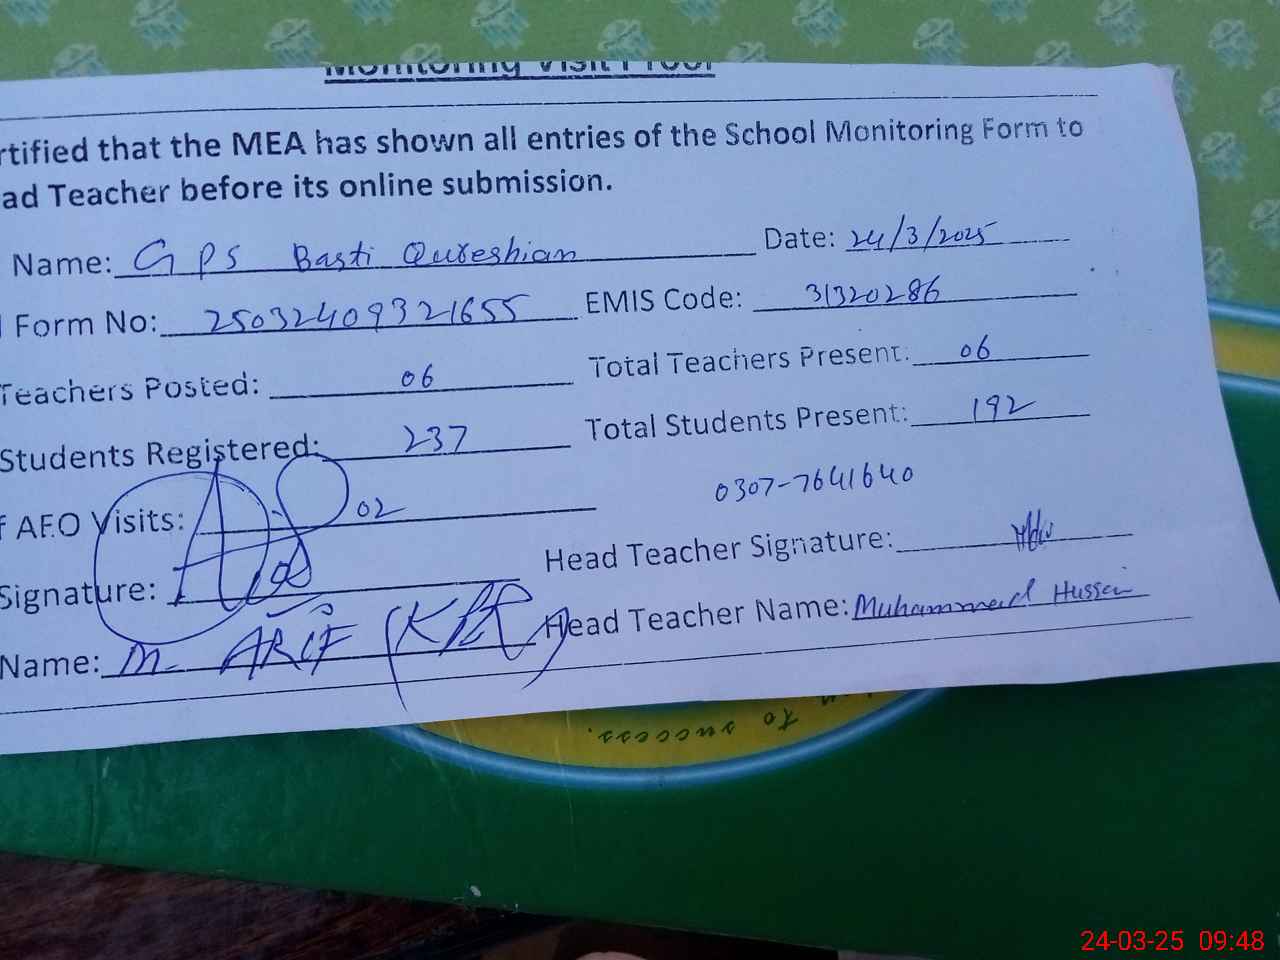 Monitoring Visit Proof
rtified that the MEA has shown all entries of the School Monitoring Form to
ad Teacher before its online submission.
Name: GPS Basti Qureshian Date: 24/3/2025
Form No: 25032409321655 EMIS Code: 31320286
Teachers Posted: 06 Total Teachers Present: 06
Students Registered: 237 Total Students Present: 192
0307-7641640
f AEO Visits: 02
Signature: Head Teacher Signature:
Name: M. ARIF Head Teacher Name: Muhammad Hussain
to success.
24-03-25 09:48